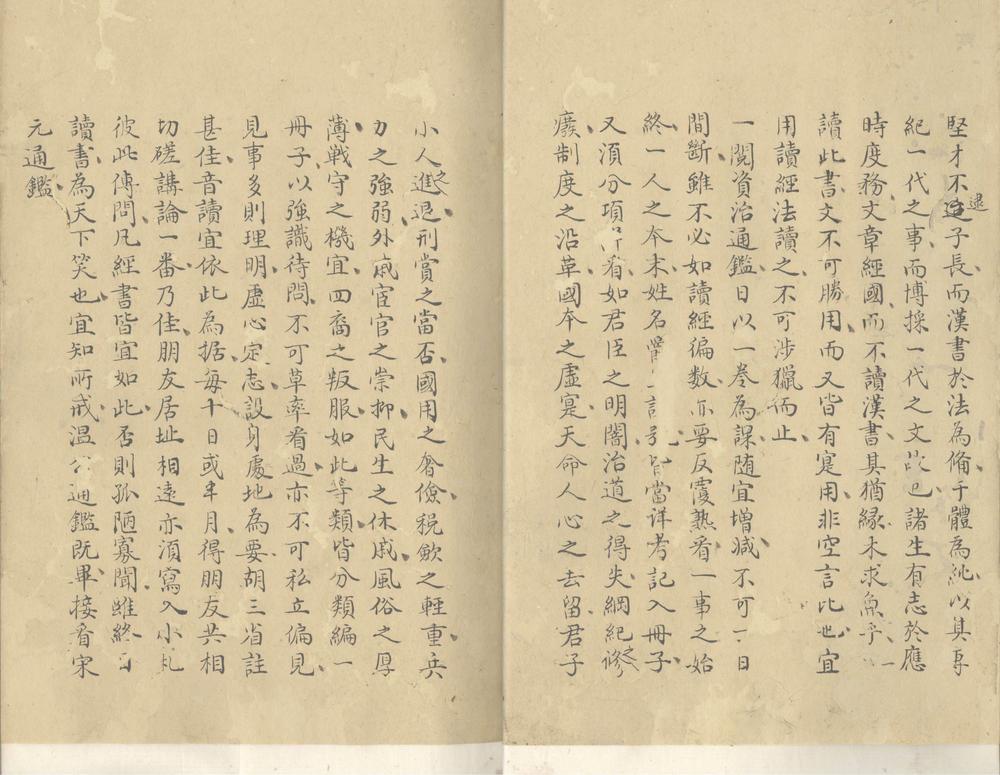 堅才不逮子長而漢書於法為脩千體為純以其專
紀一代之事而博採一代之文故也諸生有志於應
時度務文章經國而不讀漢書其猶緣木求魚乎
讀此書文不可勝用而又皆有寔用非空言比也宜
用讀經法讀之不可涉獵而止
一閱資治通鑑日以一卷為課随宜增减不可一日
間斷雖不必如讀經徧数亦要反覆熟看一事之始
終一人之夲末姓名爵言當詳考記入冊子
又湏分項看如君臣之明闇治道之得失綱紀之修
癈制度之沿革國夲之虛寔天命人心之去留君子
小人之進退刑賞之當否國用之奢儉税歛之輕重兵
力之強弱外戚宦官之崇抑民生之休戚風俗之厚
薄戦守之機宜四裔之叛服如此等類皆分類編一
冊子以強識待問不可草率看過亦不可私立偏見
見事多則理明虛心定志設身處地為要胡三省註
甚佳音讀宜依此為据每十日或半月得朋友共相
切磋講論一番乃佳朋友居址相遠亦湏寫入小札
彼此傳問凡經書皆宜如此否則孤陋寡聞雖終日
讀書為天下笑也宜知所戒温公通鑑既畢接看宋
元通鑑